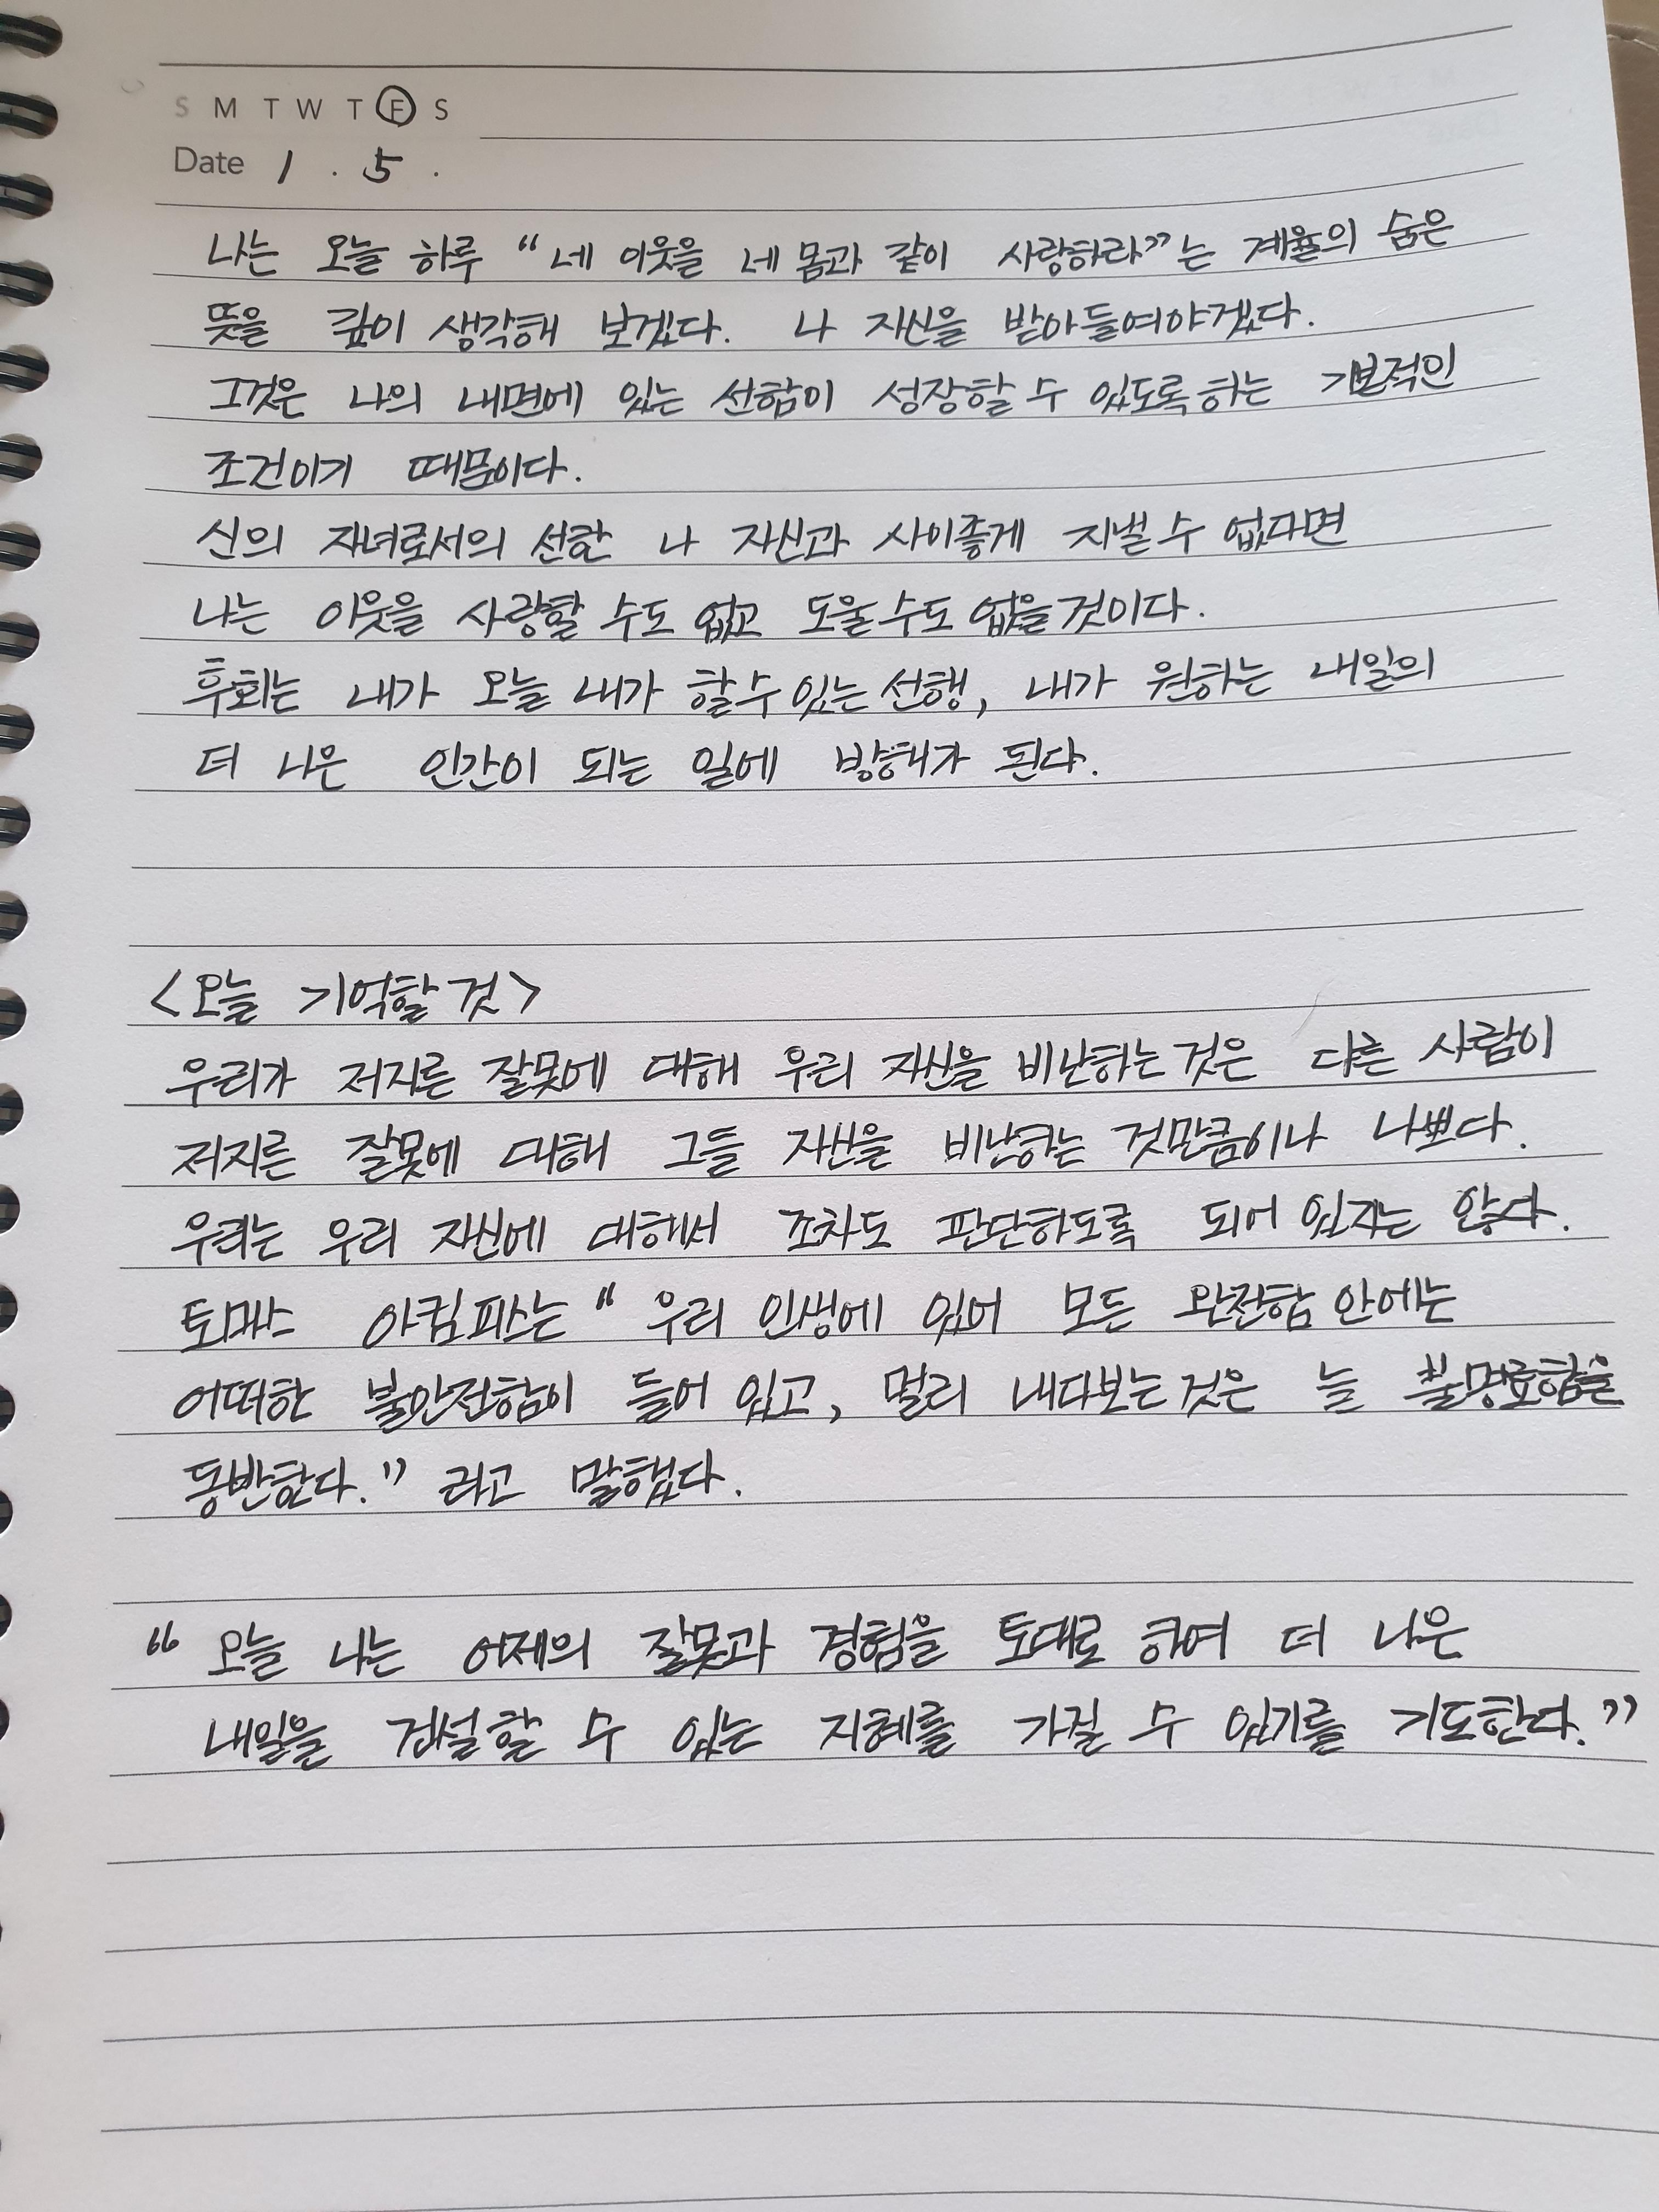 S M T W T F S
Date 1 . 5 .
나는 오늘 하루 “네 이웃을 네 몸과 같이 사랑하라”는 계율의 숨은
뜻을 깊이 생각해 보겠다. 나 자신을 받아들여야겠다.
그것은 나의 내면에 있는 선함이 성장할 수 있도록 하는 기본적인
조건이기 때문이다.
신의 자녀로서의 선한 나 자신과 사이좋게 지낼 수 없다면
나는 이웃을 사랑할 수도 없고 도울 수도 없을 것이다.
후회는 내가 오늘 내가 할 수 있는 선행, 내가 원하는 내일의
더 나은 인간이 되는 일에 방해가 된다.
<오늘 기억할 것>
우리가 저지른 잘못에 대해 우리 자신을 비난하는 것은 다른 사람이
저지른 잘못에 대해 그들 자신을 비난하는 것만큼이나 나쁘다.
우리는 우리 자신에 대해서 조차도 판단하도록 되어 있지는 않다.
토마스 아킴피스는 “우리 인생에 있어 모든 완전함 안에는
어떠한 불안전함이 들어 있고, 멀리 내다보는 것은 늘 불명료함을
동반한다.” 라고 말했다.
“오늘 나는 어제의 잘못과 경험을 토대로 하여 더 나은
내일을 건설할 수 있는 지혜를 가질 수 있기를 기도한다.”